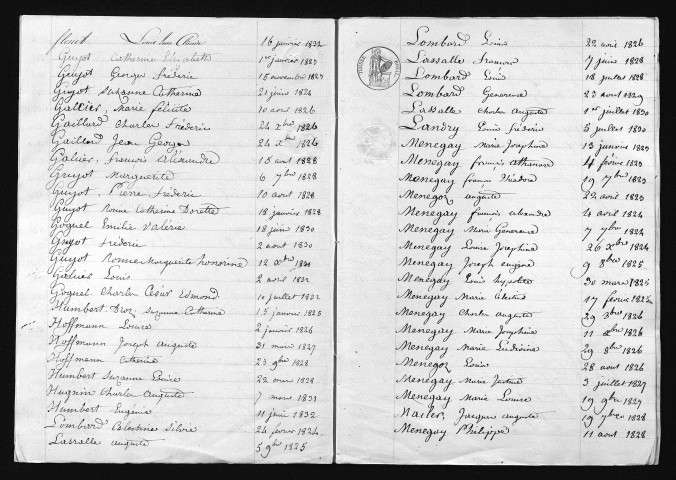 fleuet Louis Aimé Claude 16 janvier 1832
Guyot Catherine Elisabeth 1er janvier 1823
Guyot Georges Frederic 18 novembre 1823
Guyot Catherine 21 juin 1824
Galliés, Marie felicite 10 aout 1826
Gaillard Charles Frederic 24 xbre 1826
Gaillard Jean Georges 24 xbre 1826
Galier, François Alexandre 18 aout 1828
Guyot Marguerite 6 7bre 1828
Guyot Pierre frederic 10 aout 1828
Guyot Catherine Dorothe 18 janvier 1828
Goguel Emilie Valérie 18 juin 1830
Guyot frederic 2 aout 1830
Guyot Marguerite honorine 12 xbre 1830
Galliér Louis 2 avril 1832
Goguel Charles César Edmond 10 juillet 1832
Humbert Droz Suzanne Catherine 15 janvier 1825
Hoffmann Louise 2 janvier 1826
Hoffmann Joseph Auguste 31 mars 1827
Hoffmann Catherine 23 9bre 1828
Humbert Suzanne Louise 22 mai 1828
Hugnin Charles Auguste 7 mars 1831
Humbert Eugenie 11 juin 1832
Lombard Celestine Silvie 24 fevrier 1824
Lassalle auguste 5 9bre 1825
Lombard Louise 22 avril 1826
Lassalle francois 7 juin 1828
Lombard Louis 18 juillet 1828
Lombard Genereuse 23 aout 1829
Lassalle Charles Auguste 1er juillet 1830
Landry Louis frederic 5 juillet 1830
Menegay Marie Josephine 13 janvier 1823
Menegay françois athanase 4 fevrier 1823
Menegay françois théodore 19 7bre 1823
Menegoz auguste 22 avril 1823
Menegay francois alexandre 4 avril 1824
Menegay Marie Genereuse 7 7bre 1824
Menegay Louise Josephine 26 xbre 1824
Menegay Joseph eugene 9 8bre 1825
Menegay Louis hypolite 30 mars 1825
Menegay Marie Celestine 17 fevrier 1825
Menegay Charles auguste 29 7bre 1826
Menegay Marie Josephine 11 xbre 1826
Menegay Marie Ludivine 29 8bre 1826
Menegoz Louis 28 aout 1826
Menegay Marie Justine 3 juillet 1827
Menegay Marie Louise 19 9bre 1827
Nailer Jacques auguste 19 7bre 1828
Menegay Philippe 11 aout 1828